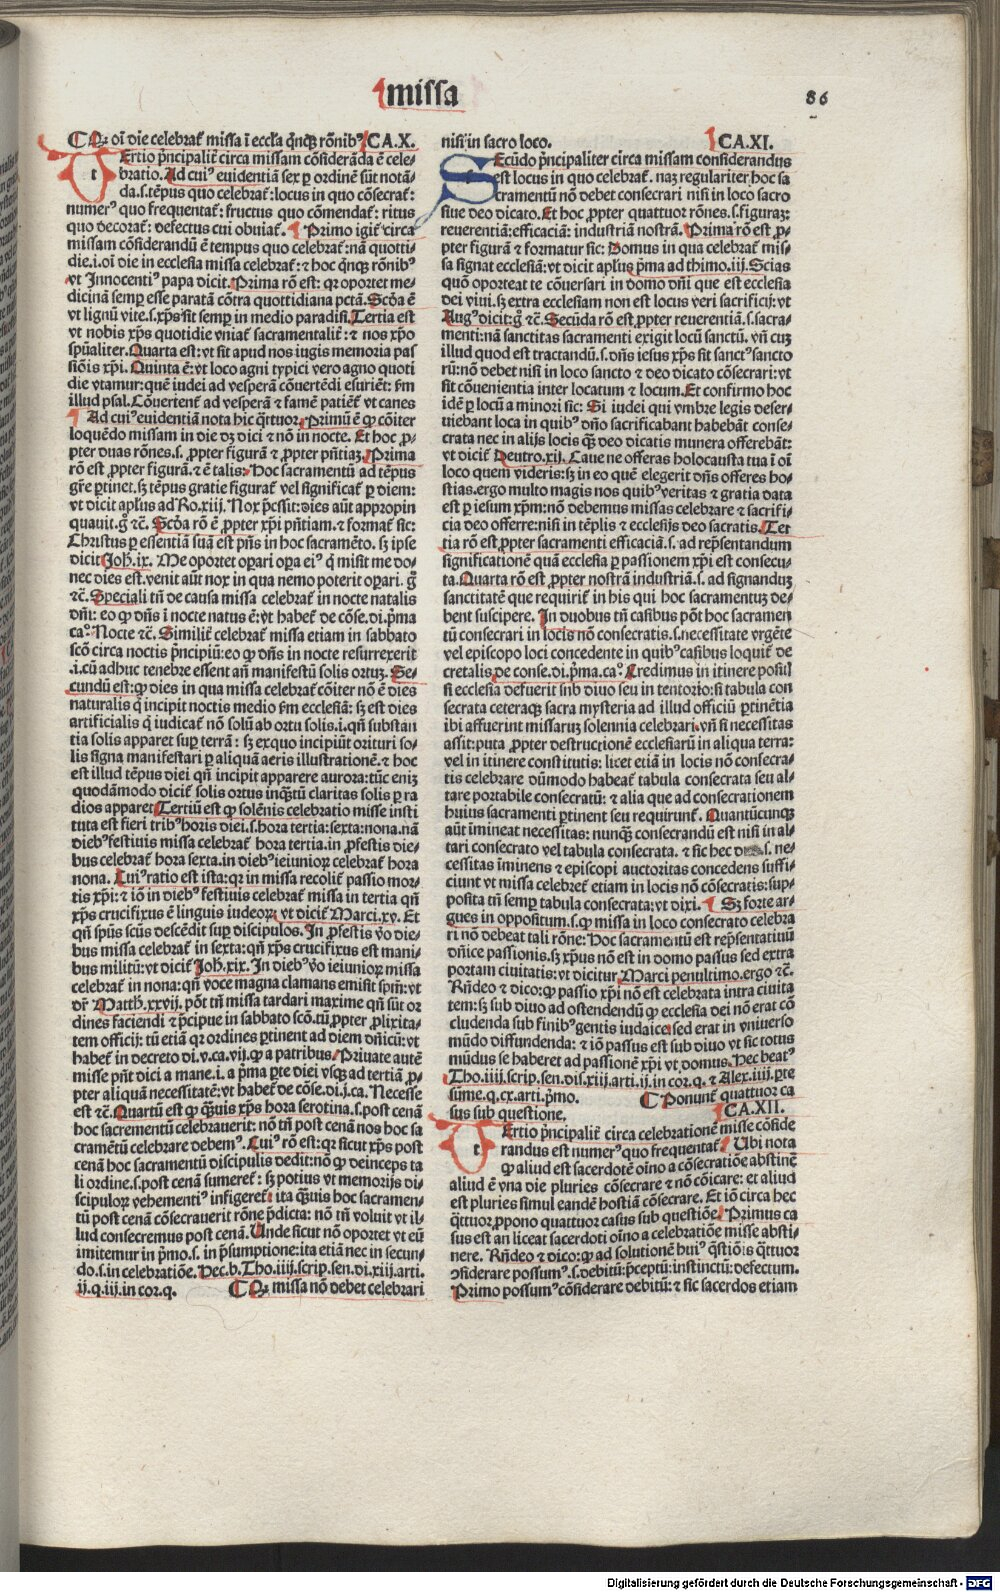 ¶missa
86
C Qꝫ oī die celebrat᷑ missa ī eccl'a qͥnqꝫ rōnibꝰ CA.X.
TErtio pͥncipalit᷑ circa missam cōsiderāda ē cele-
bratio. Ad cuiꝰ euidentiā sex ꝑ ordinē sūt notā-
da. s. tēpus quo celebrat᷑: locus in quo cōsecrat᷑:
numerꝰ quo frequentat᷑: fructus quo cōmendat᷑: ritus
quo decorat᷑: defectus cui obuiat᷑. ¶ Primo igit᷑ circa
missam cōsiderandū ē tempus quo celebrat᷑: nā quotti-
die .i. oī die in ecclesia missa celebrat᷑: ⁊ hoc qͥnqꝫ rōnibꝰ
vt Innocentiꝰ papa dicit. Prima rō est: qꝛ oportet me-
dicinā semꝑ esse paratā cōtra quottidiana pctā. Scḋa ē
vt lignū vite .s. xp̄s sit semꝑ in medio paradisi. Tertia est
vt nobis xp̄s quotidie vniat᷑ sacramentalit᷑: ⁊ nos xp̄o
spūaliter. Quarta est: vt sit apud nos iugis memoria pas
siōis xp̄i. Quinta ē: vt loco agni typici vero agno quoti
die vtamur: quē iudei ad vesperā cōuertēdi esuriēt: ẜm
illud psal. Cōuertent᷑ ad vesperā ⁊ famē patiēt᷑ vt canes
¶ Ad cuiꝰ euidentiā nota hic qͣttuor. Primū ē ꝙ cōiter
loquēdo missam in die dꝫ dici ⁊ nō in nocte. Et hoc ꝓ-
pter duas rōnes. s. ꝓpter figurā ⁊ ꝓpter pn̄tiaꝫ. Prima
rō est ꝓpter figurā. ⁊ ē talis: Hoc sacramentū ad tēpus
gr̄e ꝑtinet. sꝫ tēpus gratie figurat᷑ vel significat᷑ ꝑ diem:
vt dicit apl'us ad Ro. xiij. Nox pͤcessit: dies aūt appropin
quauit. gͦ ⁊c̄. Scḋa rō ē ꝓpter xp̄i pn̄tiam. ⁊ format᷑ sic:
Christus ꝑ essentiā suā est pn̄s in hoc sacramēto. sꝫ ipse
dicit Joh. ix. Me oportet oꝑari oꝑa eiꝰ qͥ misit me do-
nec dies est. venit aūt nox in qua nemo poterit oꝑari. gͦ
⁊c̄. Speciali tn̄ de causa missa celebrat᷑ in nocte natalis
dn̄i: eo ꝙ dn̄s ī nocte natus ē: vt habet᷑ de cōse. di. pͥma
caͦ. Nocte ⁊c̄. Similit᷑ celebrat᷑ missa etiam in sabbato
scō circa noctis pͥncipiū: eo ꝙ dn̄s in nocte resurrexerit
.i. cū adhuc tenebre essent an̄ manifestū solis ortuꝫ. Se-
cundū est: ꝙ dies in qua missa celebrat᷑ cōiter nō ē dies
naturalis qͥ incipit noctis medio ẜm ecclesiā: sꝫ est dies
artificialis qͥ iudicat᷑ nō solū ab ortu solis .i. qn̄ substan
tia solis apparet suꝑ terrā: sꝫ ex quo incipiūt orituri so-
lis signa manifestari ꝑ aliquā aeris illustrationē. ⁊ hoc
est illud tēpus diei qn̄ incipit apparere aurora: tūc eniꝫ
quodāmodo dicit᷑ solis ortus inqͣtū claritas solis ꝑ ra
dios apparet. Tertiū est ꝙ solēnis celebratio misse insti
tuta est fieri tribꝰ horis diei. s. hora tertia: sexta: nona. nā
diebꝰ festiuis missa celebrat᷑ hora tertia. in ꝓfestis die-
bus celebrat᷑ hora sexta. in diebꝰ ieiunioꝝ celebrat᷑ hora
nona. Cuiꝰ ratio est ista: qꝛ in missa recolit᷑ passio mor-
tis xp̄i: ⁊ iō in diebꝰ festiuis celebrat᷑ missa in tertia qn̄
xp̄s crucifixus ē linguis iudeoꝝ: vt dicit᷑ Marci. xv. Et
qn̄ spūs scūs descēdit suꝑ discipulos. In ꝓfestis v̄o die-
bus missa celebrat᷑ in sexta: qn̄ xp̄s crucifixus est mani-
bus militū: vt dicit᷑ Joh. xix. In diebꝰ v̄o ieiunioꝝ missa
celebrat᷑ in nona: qn̄ voce magna clamans emisit spm̄: vt
dr̄ Matth. xxvij. pōt tn̄ missa tardari maxime qn̄ sūt or
dines faciendi ⁊ pͥcipue in sabbato scō. tū ꝓpter ꝓlixita-
tem officij: tū etiā qꝛ ordines ꝑtinent ad diem dn̄icū: vt
habet᷑ in decreto di. v. ca. vij. ꝙ a patribus. Priuate autē
misse pn̄t dici a mane .i. a pͥma ꝑte diei vsqꝫ ad tertiā ꝓ-
pter aliquā necessitatē: vt habet᷑ de cōse. di. j. ca. Necesse
est ⁊c̄. Quartū est ꝙ qͣuis xp̄s hora serotina. s. post cenā
hoc sacrementū celebrauerit: nō tn̄ post cenā nos hoc sa
cramētū celebrare debemꝰ. Cuiꝰ rō est: qꝛ sicut xp̄s post
cenā hoc sacramentū discipulis dedit: nō ꝙ deinceps ta
li ordine. s. post cenā sumeret᷑: sꝫ potius vt memorijs di-
scipuloꝝ vehementiꝰ infigeret᷑: ita qͣuis hoc sacramen-
tū post cenā cōsecrauerit rōne pͥdicta: nō tn̄ voluit vt il-
lud consecremus post cenā. Unde sicut nō oportet vt eū
imitemur in pͥmo. s. in pͥsumptione: ita etiā nec in secun-
do. s. in celebratiōe. Hec. b. Tho. iiij. scrip. sen. di. xiij. arti.
ij. q. iij. in cor. q. C Qꝫ missa nō debet celebrari
nisi in sacro loco. CA.XI.
SEcūdo pͥncipaliter circa missam considerandus
est locus in quo celebrat᷑. naꝫ regulariter hoc sa
cramentū nō debet consecrari nisi in loco sacro
siue deo dicato. Et hoc ꝓpter quattuor rōnes. s. figuraꝫ:
reuerentiā: efficaciā: industriā nostrā. Prima rō est ꝓ-
pter figurā ⁊ formatur sic: Domus in qua celebrat᷑ mis-
sa signat ecclesiā: vt dicit apl'us pͥma ad thimo. iij. Scias
quō oporteat te cōuersari in domo dn̄i que est ecclesia
dei viui. sꝫ extra ecclesiam non est locus veri sacrificij: vt
Augꝰ dicit: gͦ ⁊c̄. Secūda rō est ꝓpter reuerentiā. s. sacra-
menti: nā sanctitas sacramenti exigit locū sanctū. vn̄ cuꝫ
illud quod est tractandū. s. dn̄s iesus xp̄s sit sanctꝰ sancto
rū: nō debet nisi in loco sancto ⁊ deo dicato cōsecrari: vt
sit cōuenientia inter locatum ⁊ locum. Et confirmo hoc
idē ꝑ locū a minori sic: Si iudei qui vmbre legis deser-
uiebant loca in quibꝰ dn̄o sacrificabant habebāt conse-
crata nec in alijs locis qͣꝫ deo dicatis munera offerebāt:
vt dicit᷑ Deutro. xij. Caue ne offeras holocausta tua ī oī
loco quem videris: sꝫ in eo quē elegerit dn̄s offeres ho-
stias. ergo multo magis nos quibꝰ veritas ⁊ gratia data
est ꝑ iesum xp̄m: nō debemus missas celebrare ⁊ sacrifi-
cia deo offerre: nisi in tēplis ⁊ ecclesijs deo sacratis. Ter
tia rō est ꝓpter sacramenti efficaciā. s. ad rep̄sentandum
significationē quā ecclesia ꝑ passionem xp̄i est consecu-
ta. Quarta rō est ꝓpter nostrā industriā. s. ad signanduꝫ
sanctitatē que requirit᷑ in his qui hoc sacramentuꝫ de-
bent suscipere. In duobus tn̄ casibus pōt hoc sacramen
tū consecrari in locis nō consecratis. s. necessitate vrgēte
vel episcopo loci concedente in quibꝰ casibus loquit᷑ de
cretalis. de conse. di. pͥma. ca.ͦ Credimus in itinere posiť
si ecclesia defuerit snb diuo seu in tentorio: si tabula con
secrata ceteraqꝫ sacra mysteria ad illud officiū ꝑtinētia
ibi affuerint missaruꝫ solennia celebrari. vn̄ si necessitas
assit: puta ꝓpter destructionē ecclesiarū in aliqua terra:
vel in itinere constitutis: licet etiā in locis nō consecra-
tis celebrare dūmodo habeat᷑ tabula consecrata seu al-
tare portabile consecratū: ⁊ alia que ad consecrationem
huius sacramenti ꝑtinent seu requirunt᷑. Quantūcunqꝫ
aūt īmineat necessitas: nunqͣ consecrandū est nisi in al-
tari consecrato vel tabula consecrata. ⁊ sic hec .s. ne-
cessitas īminens ⁊ episcopi auctoritas concedens suffi-
ciunt vt missa celebret᷑ etiam in locis nō cōsecratis: sup-
posita tn̄ semꝑ tabula consecrata: vt dixi. ¶ Sꝫ forte ar-
gues in oppositum. s. ꝙ missa in loco consecrato celebra
ri nō debeat tali rōne: Hoc sacramentū est rep̄sentatiuū
dn̄ice passionis. sꝫ xp̄us nō est in domo passus sed extra
portam ciuitatis: vt dicitur Marci penultimo. ergo ⁊c̄.
Rn̄deo ⁊ dico: ꝙ passio xp̄i nō est celebrata intra ciuita
tem: sꝫ sub diuo ad ostendendū ꝙ ecclesia dei nō erat cō
cludenda sub finibꝰ gentis iudaice: sed erat in vniuerso
mūdo diffundenda: ⁊ iō passus est sub diuo vt sic totus
mūdus se haberet ad passionē xp̄i vt domus. Hec beatꝰ
Tho. iiij. scrip. sen. dis. xiij. arti. ij. in cor. q. ⁊ Alex. iiij. ꝑte
sūme. q. cx. arti. pͥmo. C Ponunt᷑ quattuor ca
sus sub questione. CA.XII.
TErtio pͥncipalit᷑ circa celebrationē misse cōside
randus est numerꝰ quo frequentat᷑. Ubi nota
ꝙ aliud est sacerdotē oīno a cōsecratiōe abstinē
aliud ē vna die pluries cōsecrare ⁊ nō cōicare: et aliud
est pluries simul eandē hostiā cōsecrare. Et iō circa hec
qͣttuor ꝓpono quattuor casus sub questiōe. Primus ca
sus est an liceat sacerdoti oīno a celebratiōe misse absti-
nere. Rn̄deo ⁊ dico: ꝙ ad solutionē huiꝰ qͣstiōis qͣttuor
ↄsiderare possumꝰ. s. debitū: p̄ceptū: instinctū: defectum.
Primo possumꝰ cōsiderare debitū: ⁊ sic sacerdos etiam
Digitalisierung gefördert durch die Deutsche Forschungsgemeinschaft - DFG